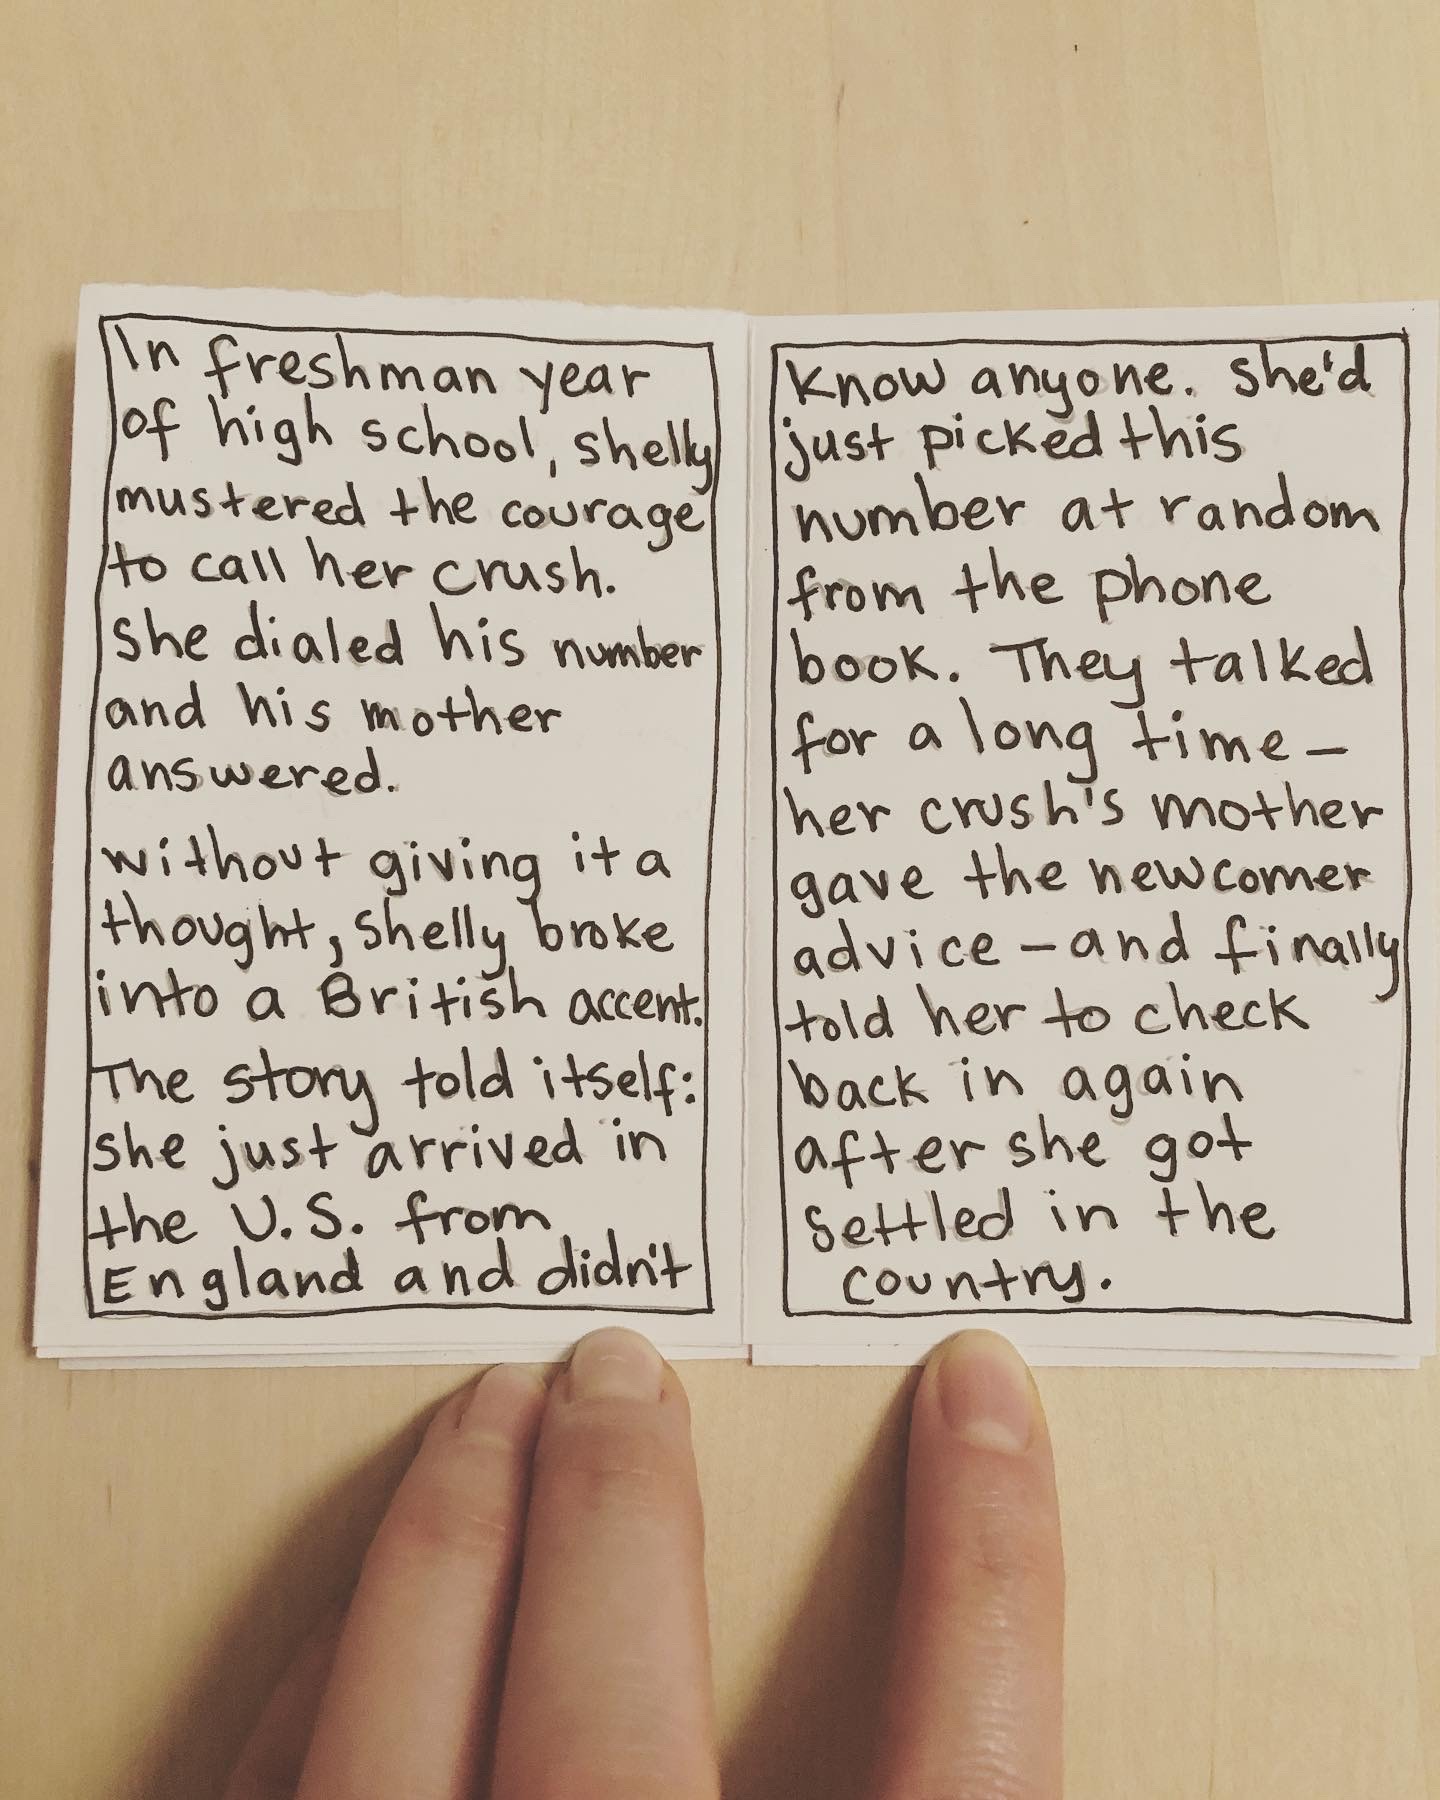 In freshman year
of high school, Shelly
mustered the courage
to call her crush.
She dialed his number
and his mother
answered.
Without giving it a
thought, Shelly broke
into a British accent.
The story told itself:
she just arrived in
the U.S. from
England and didn't
know anyone. She'd
just picked this
number at random
from the phone
book. They talked
for a long time –
her crush's mother
gave the newcomer
advice – and finally
told her to check
back in again
after she got
settled in the
country.